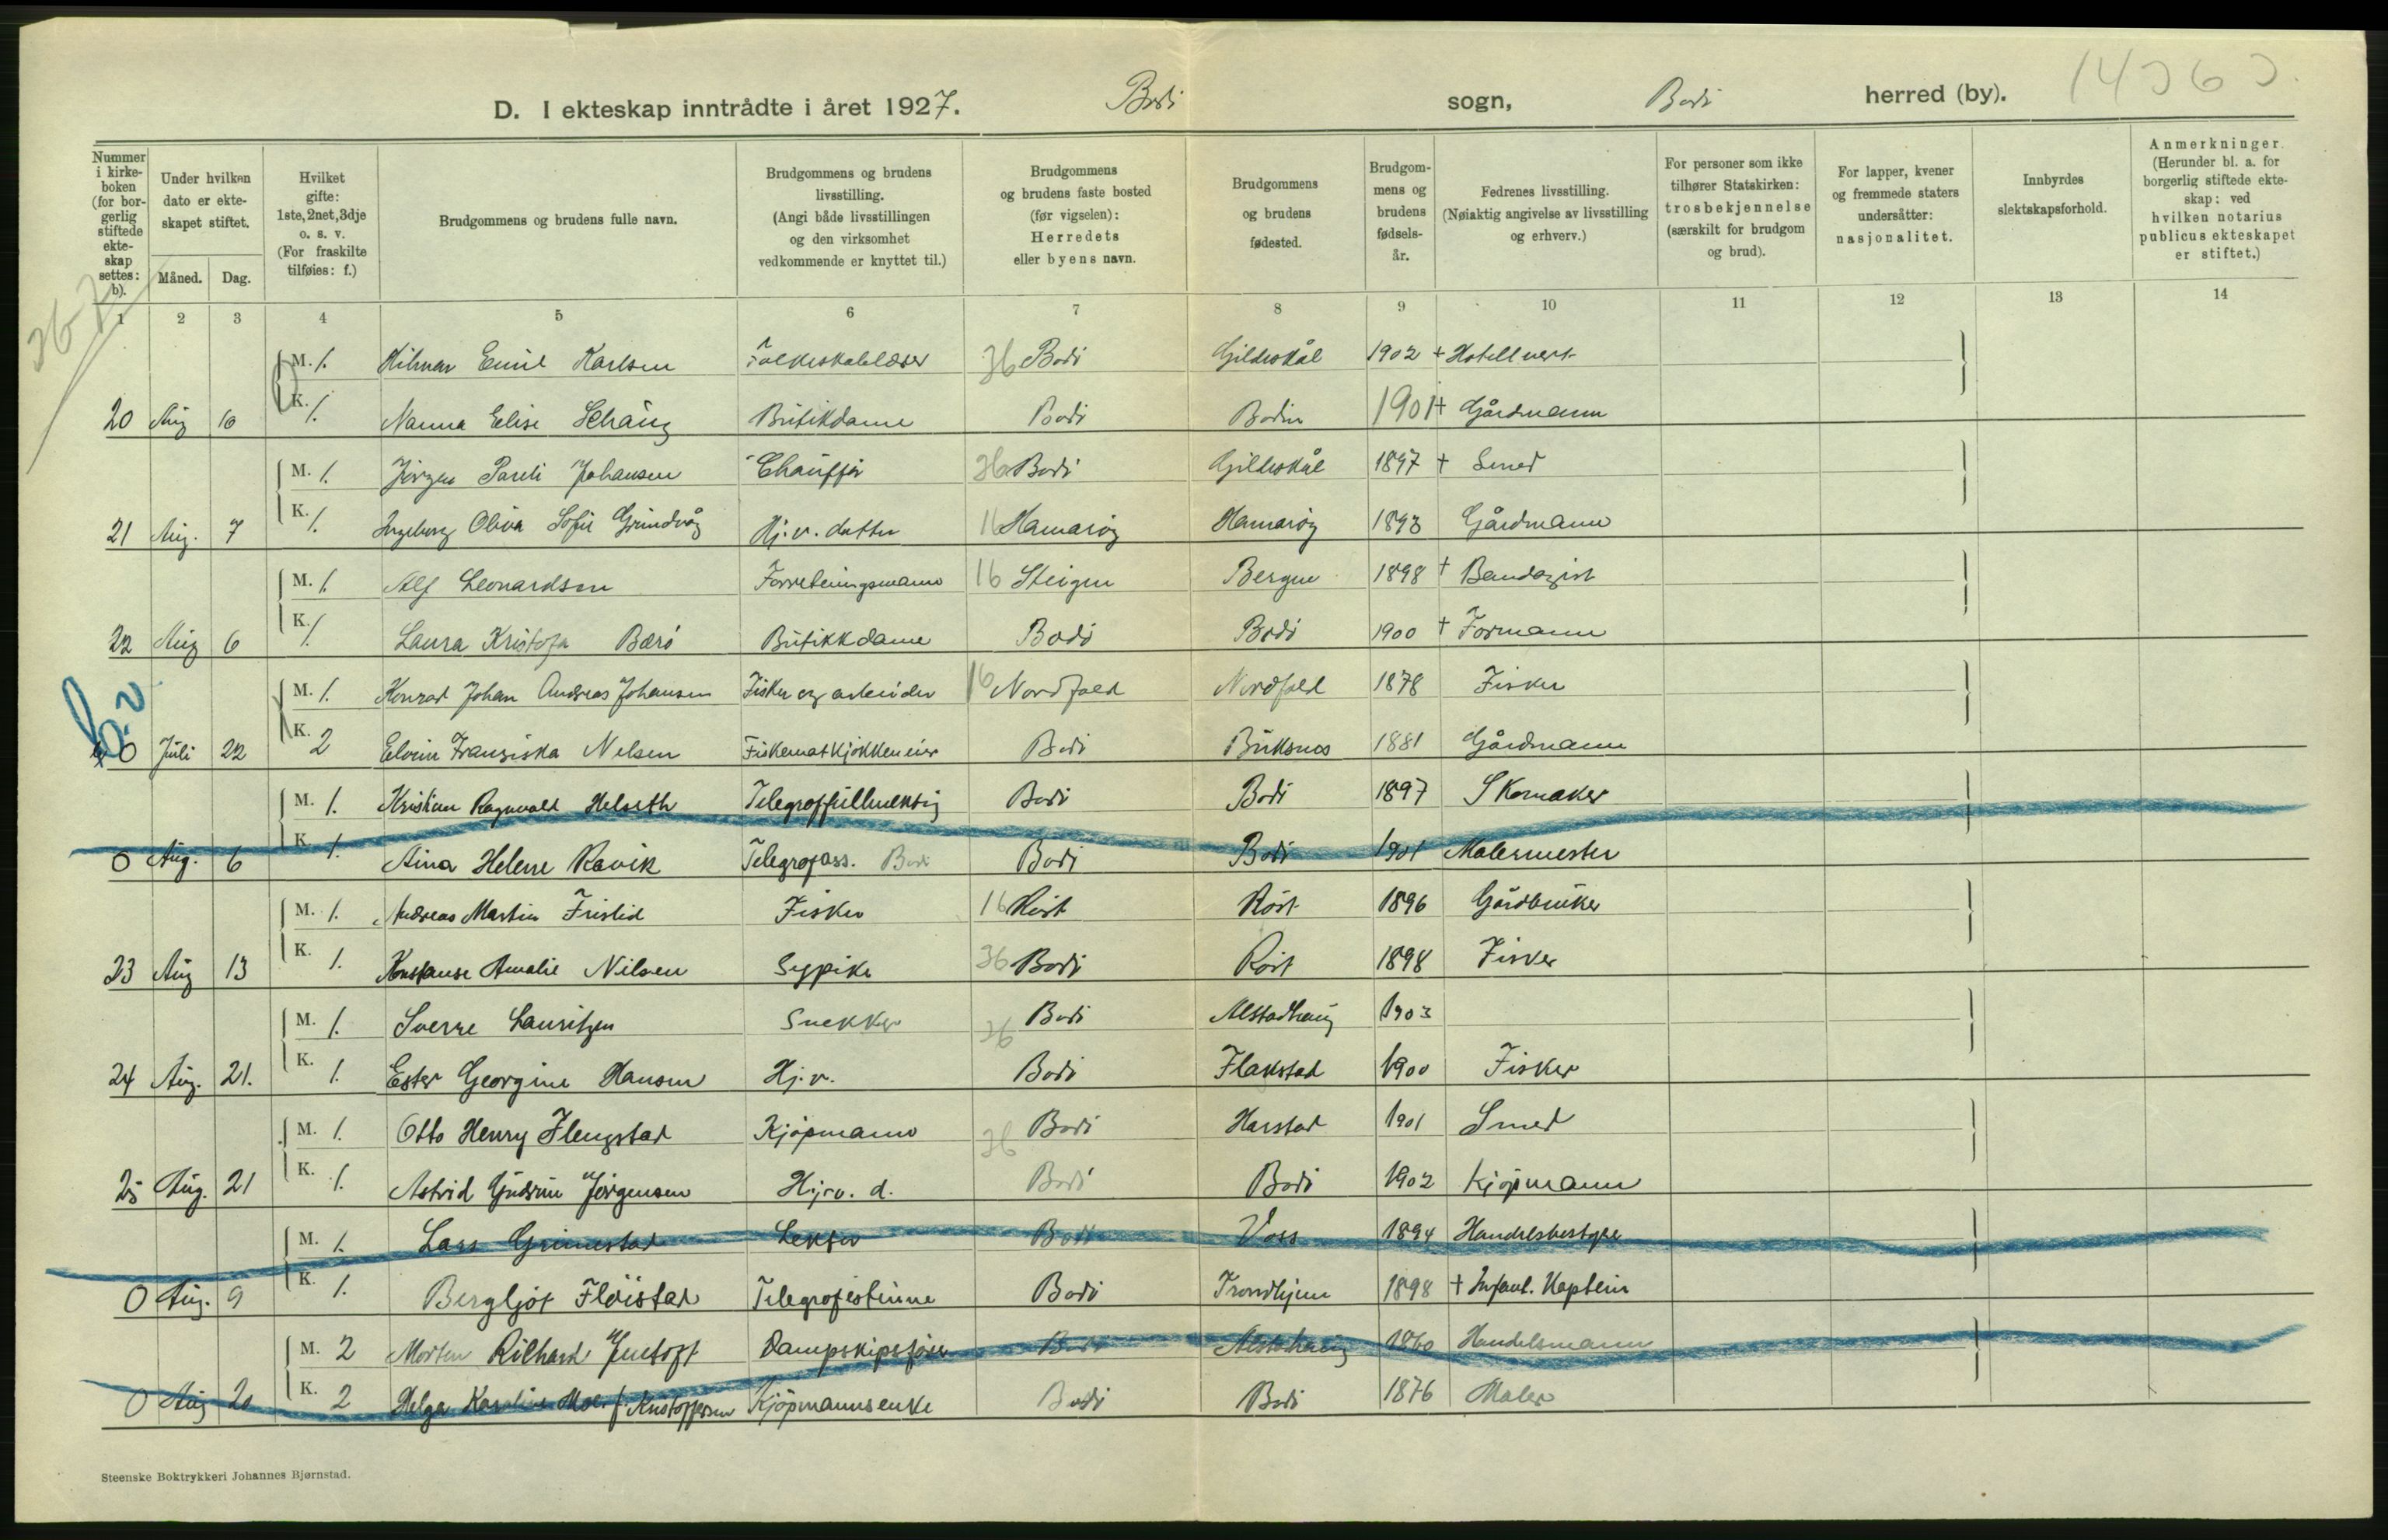 14363.
D. I ekteskap inntrådte i året 1927. Bodö sogn, Bodö herred (by).
Nummer i kirke-boken (for bor-gerlig stiftede ekte-skap settes: b).
Under hvilken dato er ekte-skapet stiftet.
Måned. Dag.
Hvilket gifte: 1ste, 2net, 3dje o. s. v. (For fraskilte tilføies: f.)
Brudgommens og brudens fulle navn.
Brudgommens og brudens livsstilling. (Angi både livsstillingen og den virksomhet vedkommende er knyttet til.)
Brudgommens og brudens faste bosted (før vigselen): Herredets eller byens navn.
Brudgommens og brudens fødested.
Brudgom-mens og brudens fødsels-år.
Fedrenes livsstilling. (Nøiaktig angivelse av livsstilling og erhverv.)
For personer som ikke tilhører Statskirken: trosbekjennelse (særskilt for brudgom og brud).
For lapper, kvener og fremmede staters undersåtter: nasjonalitet.
Innbyrdes slektskapsforhold.
Anmerkninger. (Herunder bl. a. for borgerlig stiftede ekte-skap: ved hvilken notarius publicus ekteskapet er stiftet.)
1 2 3 4 5 6 7 8 9 10 11 12 13 14
M. 1. Hilmar Emil Karlsen Folkeskolelærer 36 Bodö Gildeskål 1902 + Hotellvert
20 Aug 10 K. 1. Nanna Elise Schaug Butikdame Bodö Bodin 1901 + Gårdmann
M. 1. Jörgen Pareli Johansen Chauffør 36 Bodö Gildeskål 1897 + Smed
21 Aug. 7 K. 1. Ingeborg Oliva Sofie Grundvåg Hj. v. datter 16 Hamaröy Hamaröy 1893 Gårdmann
M. 1. Alf Leonardsen Forretningsmann 16 Steigen Bergen 1898 + Bandagist
22 Aug 6 K. 1. Laura Kristofa Barö Butikkdame Bodö Bodö 1900 + Formann
M. 1. Konrad Johan Andreas Johansen Fisker og arbeider 16 Nordfold Nordfold 1878 Fisker
b.v 0 Juli 22 K. 2 Elvine Fransiska Nilsen Fiskematkjökkeneier Bodö Buksnes 1881 Gårdmann
M. 1. Kristian Ragnvald Helseth Telegraffullmektig Bodö Bodö 1897 Skomaker
0 Aug. 6 K. 1. Aina Helene Ravik Telegrafass. Bodö Bodö Bodö 1901 Malermester
M. 1. Andreas Martin Fristid Fisker 16 Röst Röst 1896 Gårdbruker
23 Aug 13 K. 1. Konstanse Amalie Nilsen Sypike 36 Bodö Röst 1898 Fisker
M. 1. Sverre Lauritzen Snekker 36 Bodö Alstadhaug 1903
24 Aug. 21. K. 1. Ester Georgine Hansen Hj. v. Bodö Flakstad 1900 Fisker
M. 1. Otto Henry Flengstad Kjöpmann 36 Bodö Harstad 1901 Smed
25 Aug. 21 K. 1. Astrid Gudrun Jörgensen Hj. v. d. Bodö Bodö 1902 Kjöpmann
M. 1. Lars Grimestad Lektor Bodö Voss 1894 Handelsbestyrer
0 Aug. 9 K. 1. Bergljot Flöistad Telegrafistinne Bodö Trondhjem 1898 + Infant. Kaptein
M. 2 Morten Rikhard Jentoft Dampskipsförer Bodö Alstahaug 1860 Handelsmann
0 Aug 20 K. 2 Helga Karoline Moe f. Kristoffersen Kjöpmannsenke Bodö Bodö 1876 Maler
Steenske Boktrykkeri Johannes Bjørnstad.